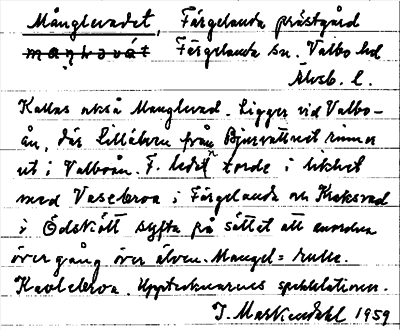 Månglevadet, Färgelanda prästgård
Färgelanda sn. Valbo hd
Älvsb. l.
Kallas också Manglevad. Ligger vid Valbo-
ån, där Lillälven från Bjursvattnet rinner
ut i Valboån. F. ledet torde i likhet
med Vasebron i Färgelanda och Kraksvad
i Ödskölt syfta på sättet att anordna
övergång över älven. Mangel = rulle.
Kavlebron. Upptecknarens spekulationer.
1959